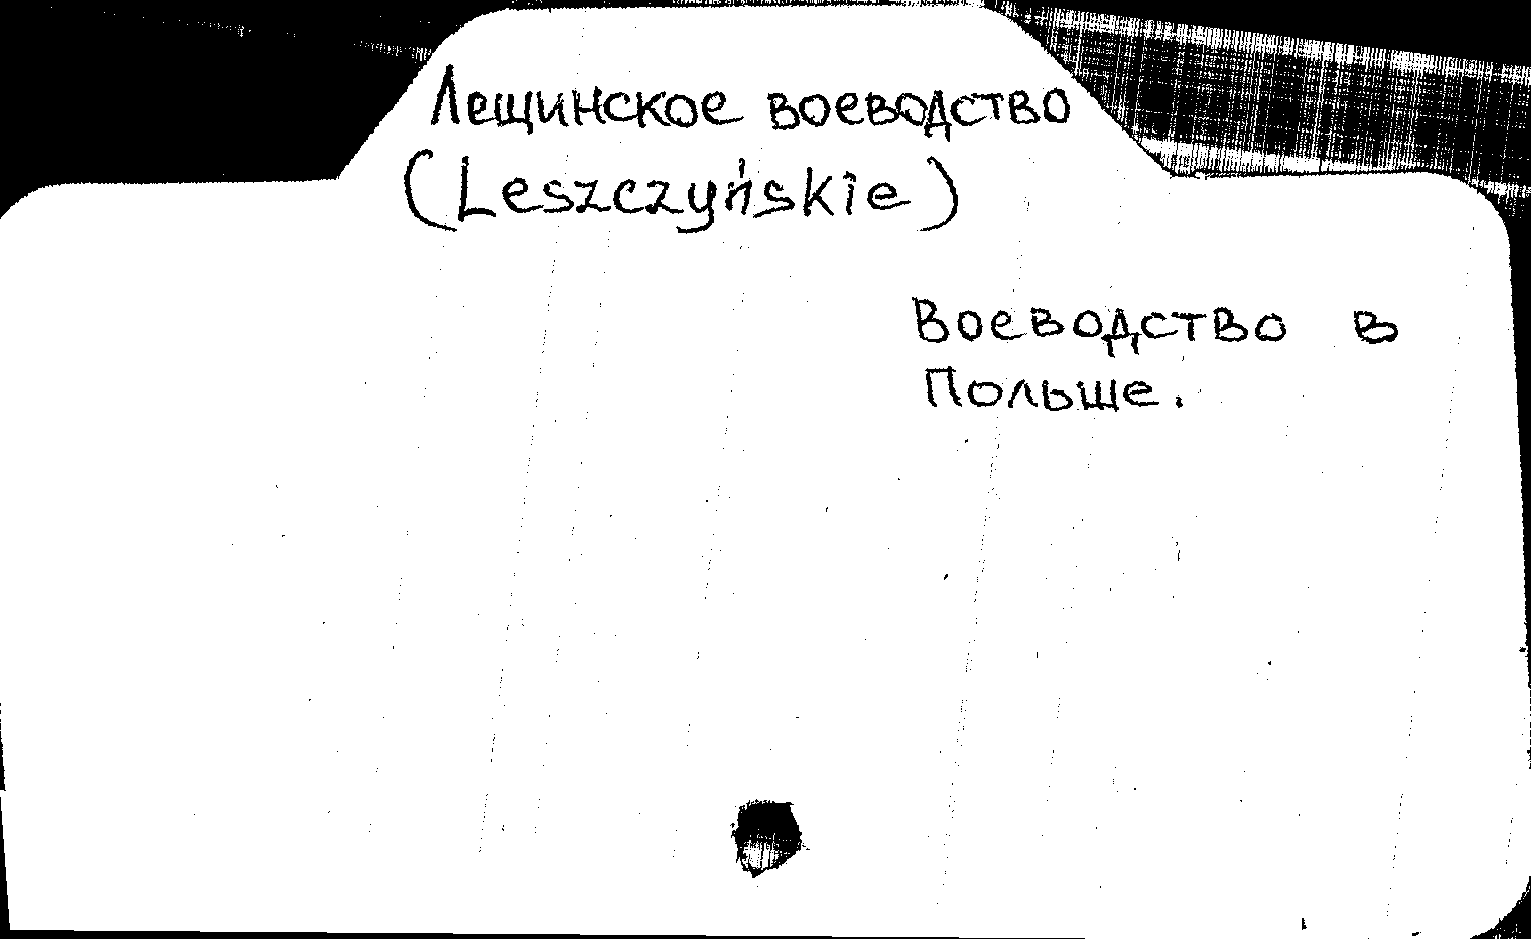 Лещинское воеводство
(Leszczyńskie)
Воеводство в
Польше.